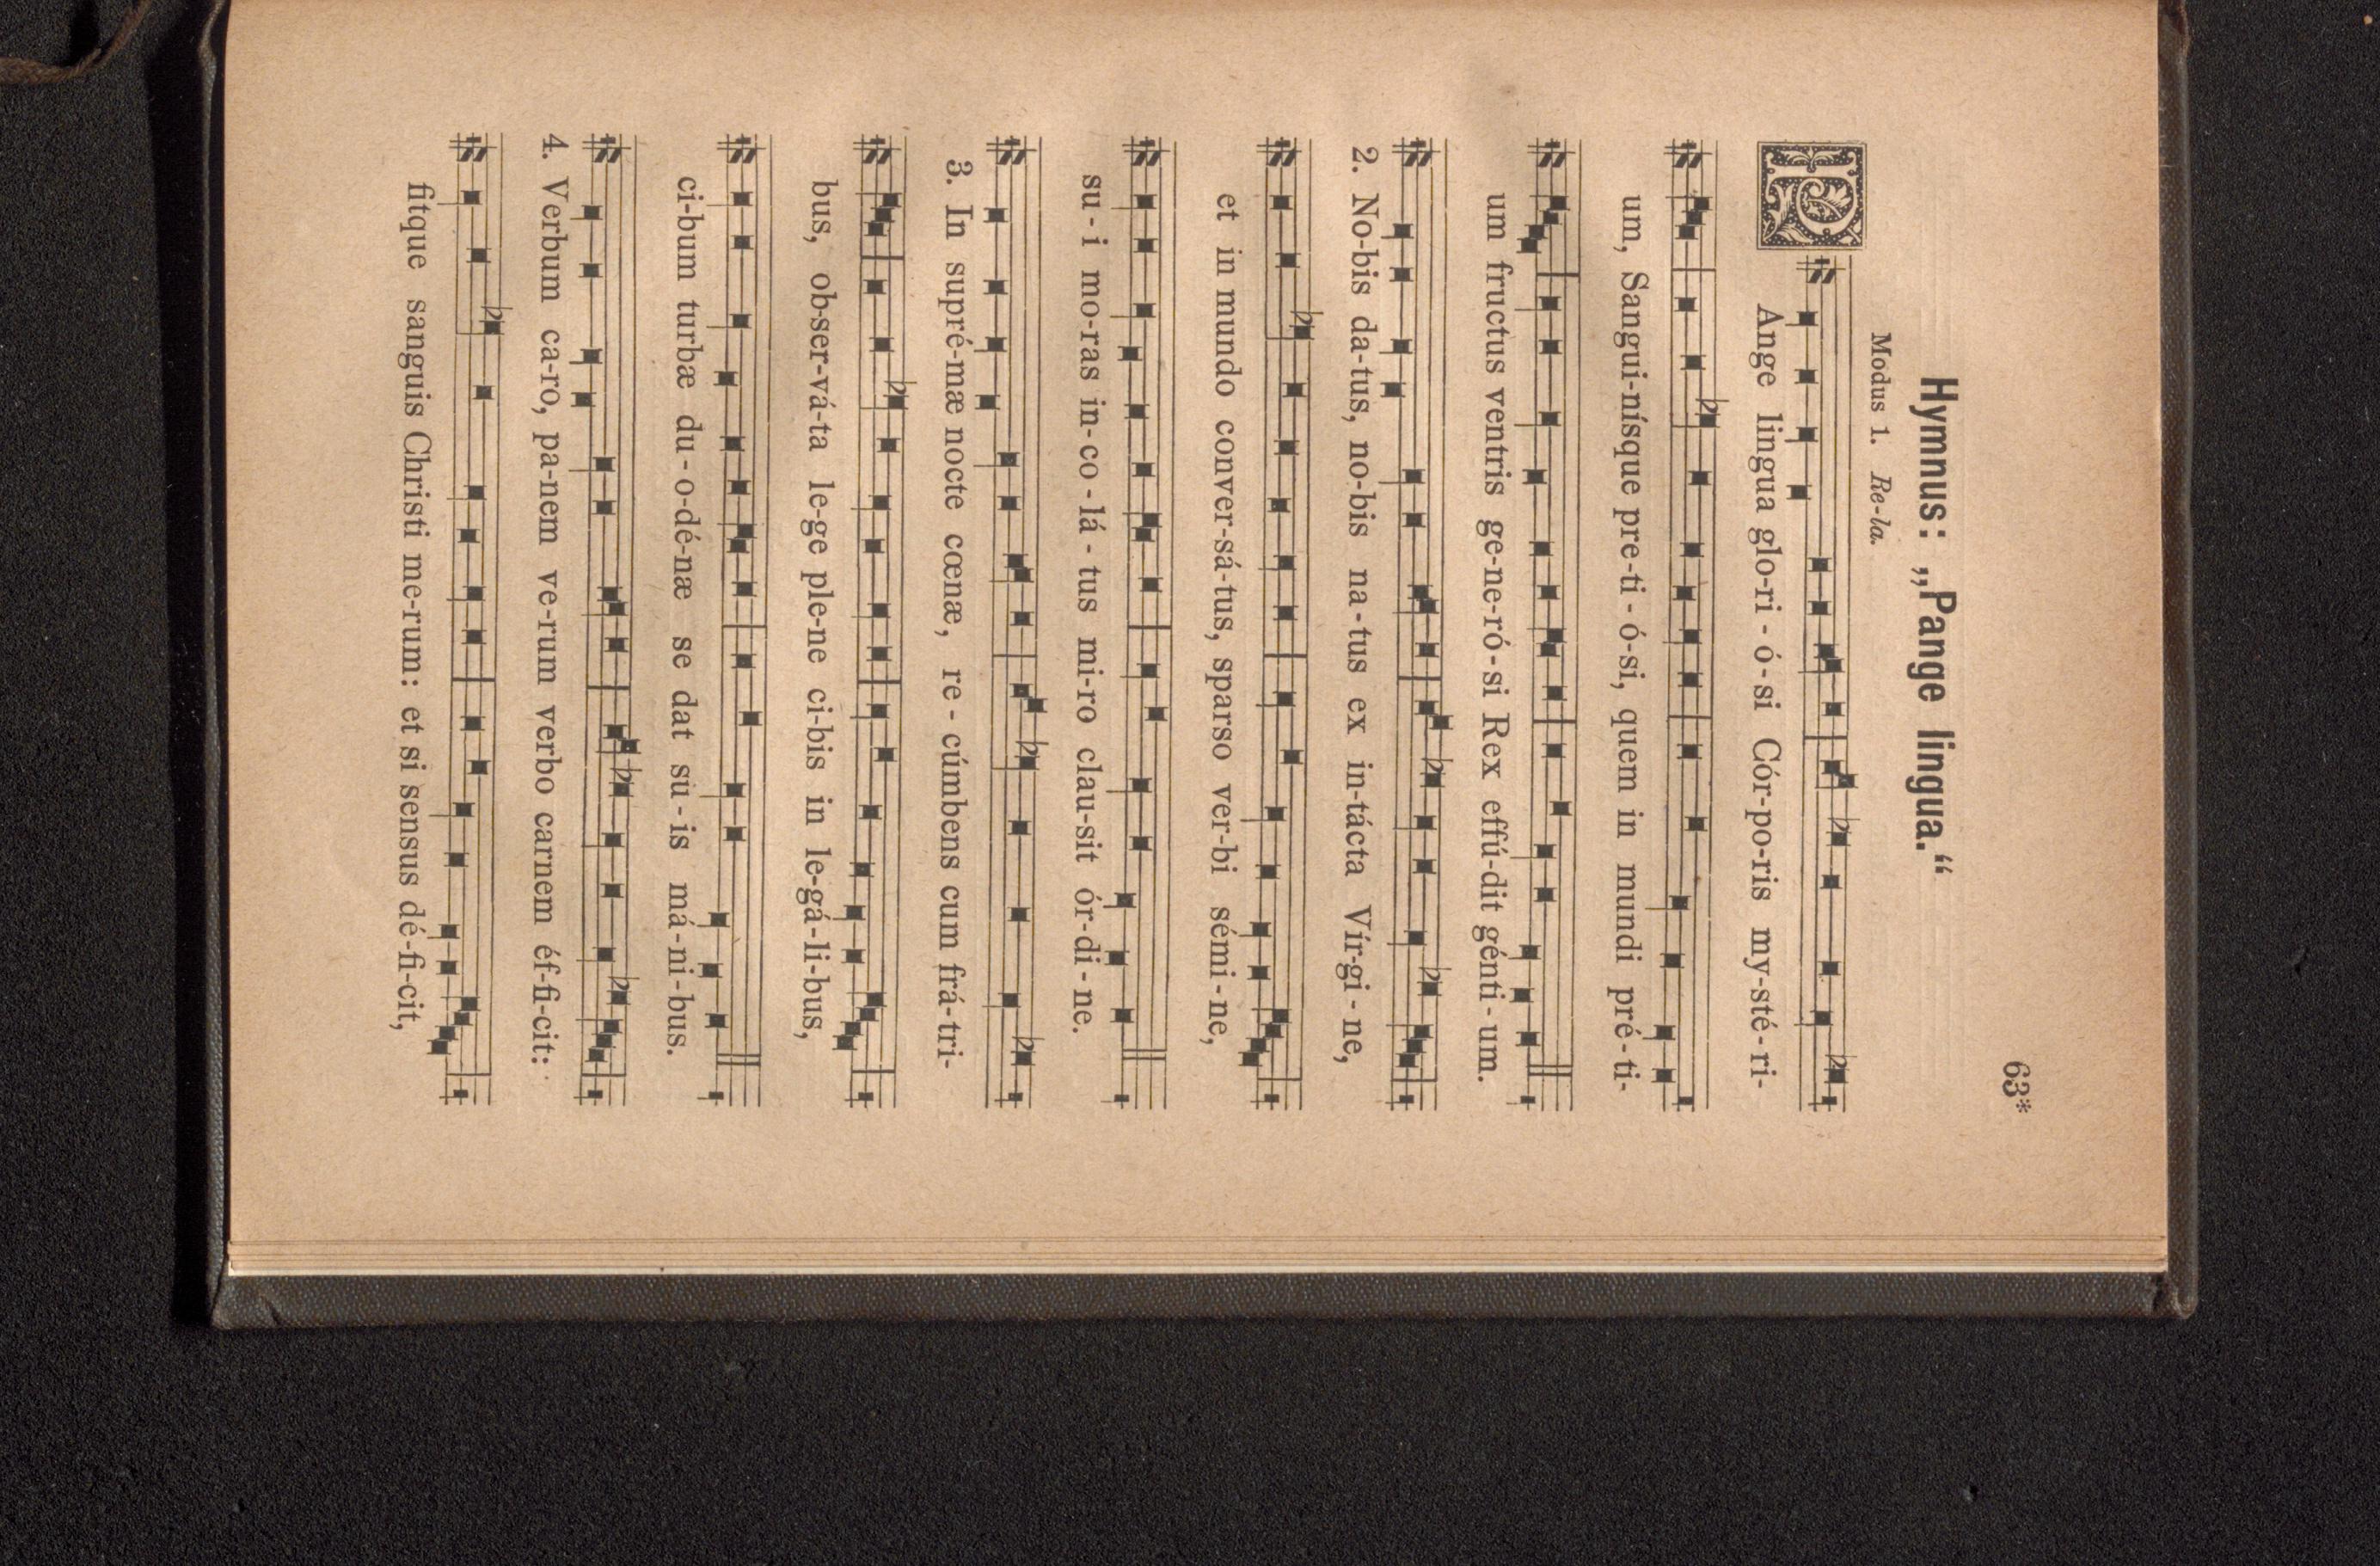 63*
Hymnus: „Pange lingua.“
Modus 1. Re-la.
PAnge lingua glo-ri-ó-si Cór-po-ris my-sté-ri-
um, Sangui-nísque pre-ti-ó-si, quem in mundi pré-ti-
um fructus ventris ge-ne-ró-si Rex effú-dit génti-um.
2. No-bis da-tus, no-bis na-tus ex in-tácta Vír-gi-ne,
et in mundo conver-sá-tus, sparso ver-bi sémi-ne,
su-i mo-ras in-co-lá-tus mi-ro clau-sit ór-di-ne.
3. In supré-mæ nocte cœnæ, re-cúmbens cum frá-tri-
bus, ob-ser-vá-ta le-ge ple-ne ci-bis in le-gá-li-bus,
ci-bum turbæ du-o-dé-næ se dat su-is má-ni-bus.
4. Verbum ca-ro, pa-nem ve-rum verbo carnem éf-fi-cit:
fitque sanguis Christi me-rum: et si sensus dé-fi-cit,